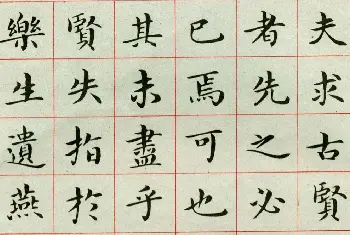 夫求古賢
者先之必
已焉可也
其未盡乎
賢失指於
樂生遺燕